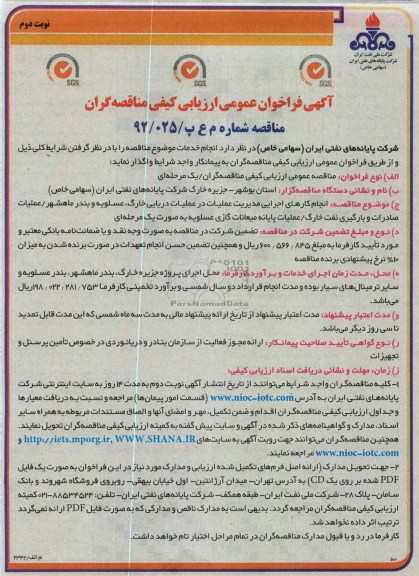 نوبت دوم
شرکت ملی نفت ایران
شرکت پایانه‌های نفتی ایران
(سهامی خاص)
SGS
SGS
SGS
آگهی فراخوان عمومی ارزیابی کیفی مناقصه‌گران
مناقصه شماره م ع پ/۹۲/۰۲۵
شرکت پایانه‌های نفتی ایران (سهامی خاص) در نظر دارد انجام خدمات موضوع مناقصه را با در نظر گرفتن شرایط کلی ذیل
و از طریق فراخوان عمومی ارزیابی کیفی مناقصه‌گران به پیمانکار واجد شرایط واگذار نماید:
الف) نوع فراخوان: مناقصه عمومی ارزیابی کیفی مناقصه‌گران/یک مرحله‌ای
ب) نام و نشانی دستگاه مناقصه‌گزار: استان بوشهر- جزیره خارک شرکت پایانه‌های نفتی ایران (سهامی خاص)
ج) موضوع مناقصه: انجام کارهای اجرایی مدیریت عملیات در عملیات دریایی خارگ، عسلویه و بندر ماهشهر/عملیات
صادرات و بارگیری نفت خارگ/عملیات پایانه میعانات گازی عسلویه به صورت یک مرحله‌ای
د) نوع و مبلغ تضمین شرکت در مناقصه: تضمین شرکت در مناقصه به صورت وجه نقد و یا ضمانت‌نامه بانکی معتبر و
مورد تأیید کارفرما به مبلغ ۶۰۰,۵۶۶,۸۴۵ ریال و همچنین تضمین حسن انجام تعهدات در صورت برنده شدن به میزان
۱۰% نرخ پیشنهادی برنده مناقصه
ه) محل، مدت زمان اجرای خدمات و برآورد کارفرما: محل اجرای پروژه جزیره خارگ، بندر ماهشهر، بندر عسلویه و
سایر ترمینال‌های سیار بوده و مدت انجام قرارداد دو سال شمسی و برآورد تخمینی کارفرما ۱۹۸,۰۲۲,۲۸۱,۷۵۳ ریال
می‌باشد.
و) مدت اعتبار پیشنهاد: مدت اعتبار پیشنهاد از تاریخ ارائه پیشنهاد مالی به مدت سه ماه شمسی که این مدت قابل تمدید
تا سی روز دیگر می‌باشد.
ز) نوع گواهی تأیید صلاحیت پیمانکار: ارائه مجوز فعالیت از سازمان بنادر و دریانوردی در خصوص تأمین پرسنل و
تجهیزات
ژ) زمان، مهلت و نشانی دریافت اسناد ارزیابی کیفی:
۱- کلیه مناقصه‌گران واجد شرایط می‌توانند از تاریخ انتشار آگهی نوبت دوم به مدت ۱۴ روز به سایت اینترنتی شرکت
پایانه‌های نفتی ایران به آدرس www.nioc-iotc.com (قسمت امور پیمان‌ها) مراجعه و نسبت به دریافت معیارها
و جداول ارزیابی کیفی مناقصه‌گران اقدام و ضمن تکمیل، مهر و امضای آنها و الصاق مستندات مربوطه به همراه سایر
اسناد، مدارک و گواهینامه‌های ذکر شده در آگهی و سایت پیش گفته به کمیته ارزیابی کیفی مناقصه‌گران تحویل نمایند.
همچنین مناقصه‌گران می‌توانند جهت رویت آگهی به سایت‌های http://iets.mporg.ir, WWW.SHANA.IR و
www.nioc-iotc.com مراجعه نمایند.
۲- جهت تحویل مدارک (ارائه اصل فرم‌های تکمیل شده ارزیابی و مدارک مورد نیاز در این فراخوان به صورت یک فایل
PDF شده بر روی یک CD) به آدرس تهران- میدان آرژانتین- اول خیابان بیهقی- روبروی فروشگاه شهروند و بانک
سامان- پلاک ۲۸- شرکت ملی نفت ایران- طبقه همکف- شرکت پایانه‌های نفتی ایران- تلفن: ۸۸۵۳۴۵۲۴-۰۲۱ کمیته
ارزیابی کیفی مناقصه‌گران مراجعه گردد. بدیهی است به مدارک ناقص و مدارکی که به صورت فایل PDF ارائه نمی‌گردد
ترتیب اثر داده نخواهد شد.
کارفرما در رد و یا قبول مدارک مناقصه‌گران در تمام مراحل اختیار تام خواهد داشت.
م الف/۲۳۴۲